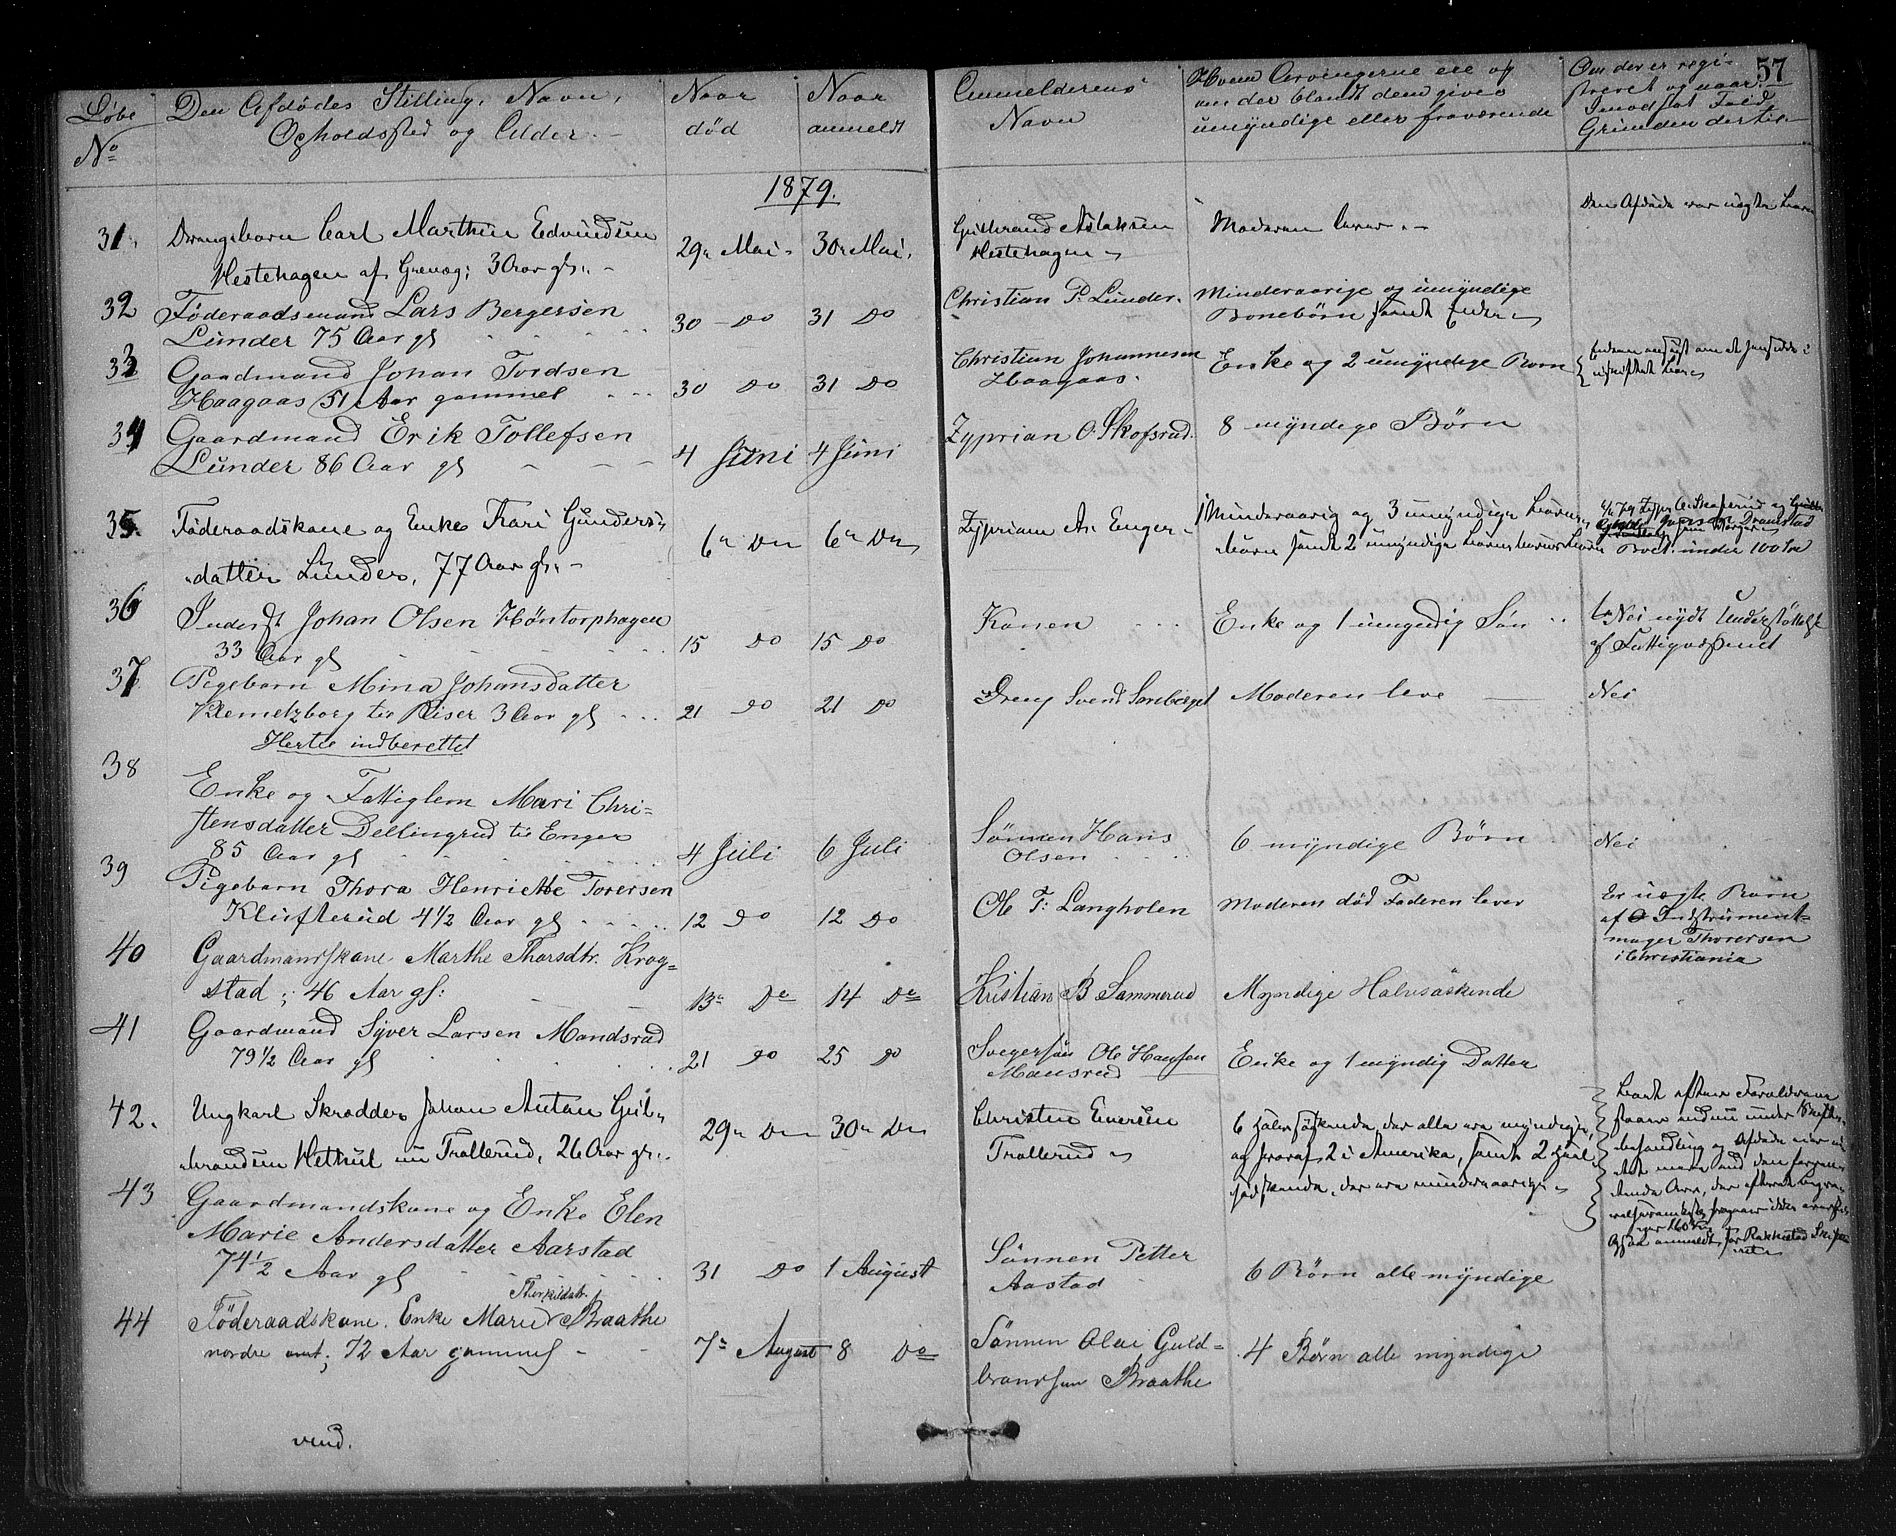 57
Løbe No
Den Afdødes Stilling, Navn,
Opholdssted og Alder.
Naar
død
Naar
anmeldt
Anmelderens
Navn
Hvem Arvingerne ere og
om der blandt dem gives
umyndige eller fraværende
Om der er regi-
streret og naar.
I modsat Fald
Grunden dertil
1879.
31. Drengebarn Carl Marthin Edvindsen
Hestehagen af Grevog; 3 Aar gl. -
29n Mai. 30n Mai.
Gulbrand Aslaksen
Hestehagen
Moderen lever. -
Den Afdøde var uægte
32 Føderaadsmand Lars Bergersen
Lunder 75 Aar gl
30 - Do 31 Do
Christian P. Lunder.
Minderaarige og umyndige
Bonebörn samt Enke
33 Gaardmand Johan Tordsen
Haagaas 51 Aar gammel
30 do 31 Do
Christian Johannesen
Haagaas.
Enke og 2 umyndige Børn
34 Gaardmand Erik Tollefsen
Lunder 86 Aar gl
4 Juni 4 Juni
Zyprian O. Skofsrud.
8 myndige Børn
35. Føderaadskone og Enke Kari Gunders-
datter Lunder, 77 Aar gl. -
6n Dn 6n Dn
Zyprian An. Enger -
1 Minderaarig og 3 umyndige
børn samt 2 umyndige
Boet under 100 Kr
36 Inderst Johan Olsen Höntorphagen
33 Aar gl
15 do 15 do
Konen
Enke og 1 umyndig Søn
Nei nydt Understøttelse
af Fattigvæsenet
37 Pigebarn Mina Johansdatter
Klemetzborg til Riser 3 Aar gl
21 do 21 Do
Dreng Svend
Moderen leve
Nei
Hertil indberettet
38 Enke og Fattiglem Mari Chri-
stensdatter Dellingrud til Enger
85 Aar gl
4 Juli 6 Juli
Sønnen Hans
Olsen
6 myndige Børn
Nei
39 Pigebarn Thora Henriette Torersen
Klufterud 4 1/2 Aar gl
12 do 12 Do
Ole T. Langholen
Moderen død Faderen lever
Er uægte Barn
af Instrument-
mager Thorersen
i Christiania
40 Gaardmandskone Marthe Thorsdtr. Krog-
stad; 46 Aar gl:
13n Do 14 Do
Kristian B Sammerud
Myndige Halvsøskende
41 Gaardmand Syver Larsen Mandsrud
79 1/2 Aar gl
21 do 25 do
Svegersøn Ole Hansen
Mansrud
Enke og 1 myndig Datter
42. Ungkarl Skrædder Johan Anton Gul-
brandsen Hethul nu Trollerud, 26 Aar gl.
29n Dn 30n Dn
Christen Eversen
Trollerud
6 Halvsøskende, der alle ere myndige,
og hvoraf 2 i Amerika, samt 2 Hel-
sødskende, der ere minderaarige
Boet efter Forældrene
staar endnu under Skifte-
behandling og Afdøde eier
andet mere end den
Arv, der efterat
var 160 Kr
Ogsaa anmeldt for Rakkestad Skifte-
ret
43 Gaardmandskone og Enke Elen
Marie Andersdatter Aarstad
74 1/2 Aar gl
31 Do 1 August
Sønnen Petter
Aastad
6 Børn alle myndige
44 Føderaadskone. Enke Marie Thorkildstr. Braathe
nordre ; 72 Aar gammel -
7n August 8 Do
Sønnen Olai Guld-
brandsen Braathe
4 Børn alle myndige
vend.